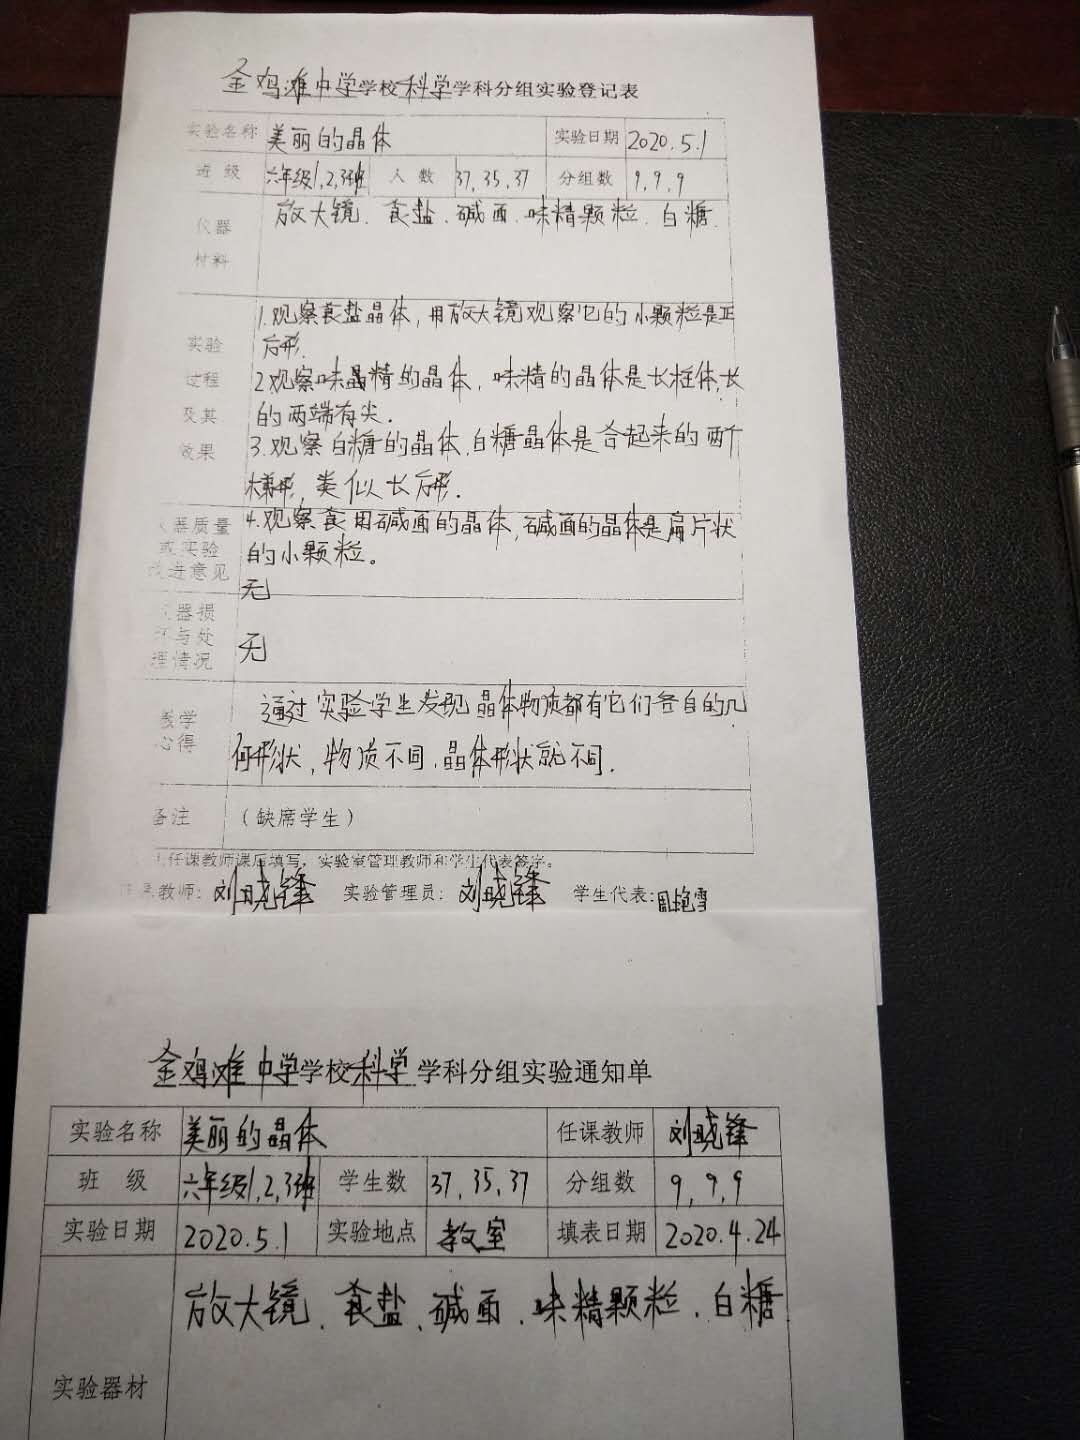 金鸡滩中学学校科学学科分组实验登记表
实验名称 美丽的晶体 实验日期 2020.5.1
班 级 六年级1,2,3班 人 数 37,35,37 分组数 9,9,9
仪器 放大镜、食盐、碱面、味精颗粒、白糖.
材料
1.观察食盐晶体,用放大镜观察它的小颗粒是正
实验 方形.
过程 2.观察味精的晶体,味精的晶体是长柱体,长
及其 的两端有尖.
效果 3.观察白糖的晶体,白糖晶体是合起来的两个
梯形,类似长方形.
器质量 4.观察食用碱面的晶体,碱面的晶体是扁片状
或实验 的小颗粒。
改进意见 无
器损
与处 无
理情况
教学 通过实验学生发现晶体物质都有它们各自的几
心得 何形状,物质不同,晶体形状就不同.
备注 (缺席学生)
任课教师课后填写,实验室管理教师和学生代表签字。
教师: 刘晓锋 实验管理员: 刘晓锋 学生代表: 周艳雪
金鸡滩中学学校科学学科分组实验通知单
实验名称 美丽的晶体 任课教师 刘晓锋
班 级 六年级1,2,3班 学生数 37,35,37 分组数 9,9,9
实验日期 2020.5.1 实验地点 教室 填表日期 2020.4.24
放大镜、食盐、碱面、味精颗粒、白糖
实验器材